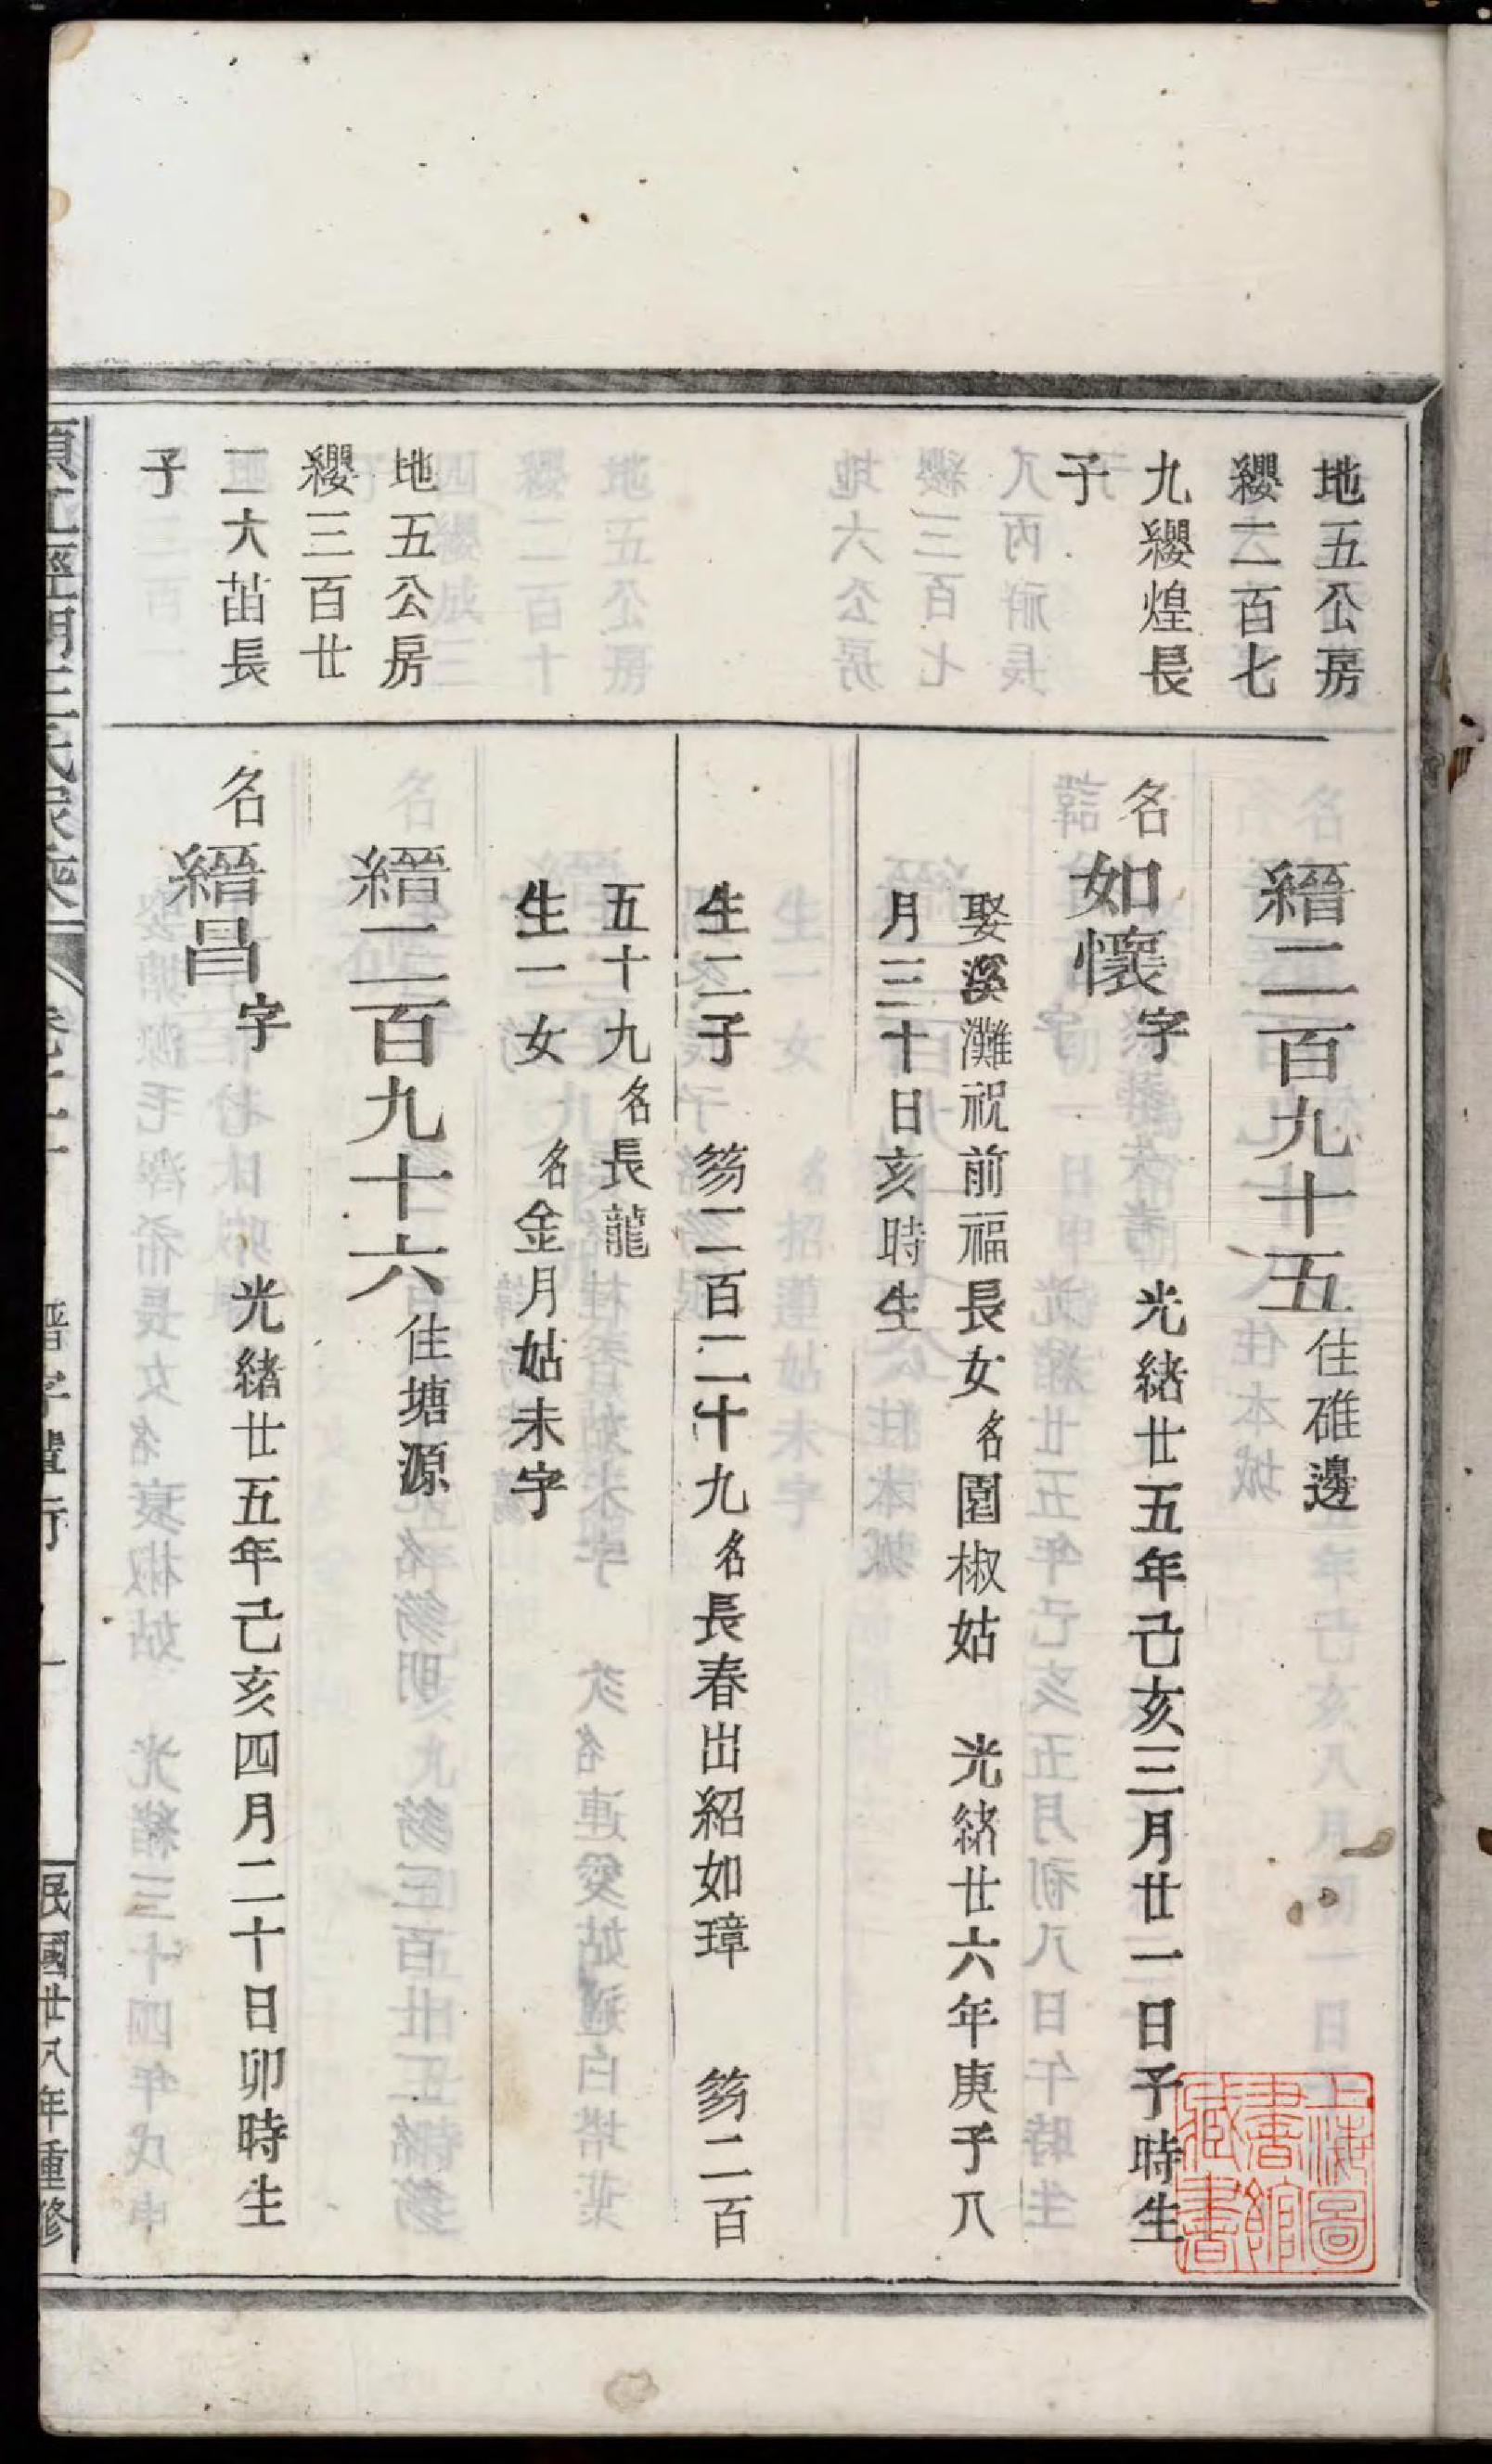 地五公房
纓二百七
九纓煌長
子
縉二百九十五住碓邊
名如懷字 光緒廿五年己亥三月廿一日子時生
娶溪灘祝前福長女名園椒姑 光緒廿六年庚子八
月三十日亥時生
生二子 笏二百二十九名長春出紹如璋 笏二百
五十九名長龍
生一女 名金月姑未字
地五公房
纓三百廿
一大苗長
子
縉二百九十六住塘源
名縉昌字 光緒廿五年己亥四月二十日卯時生
民國廿八年重修
上海圖書館藏書